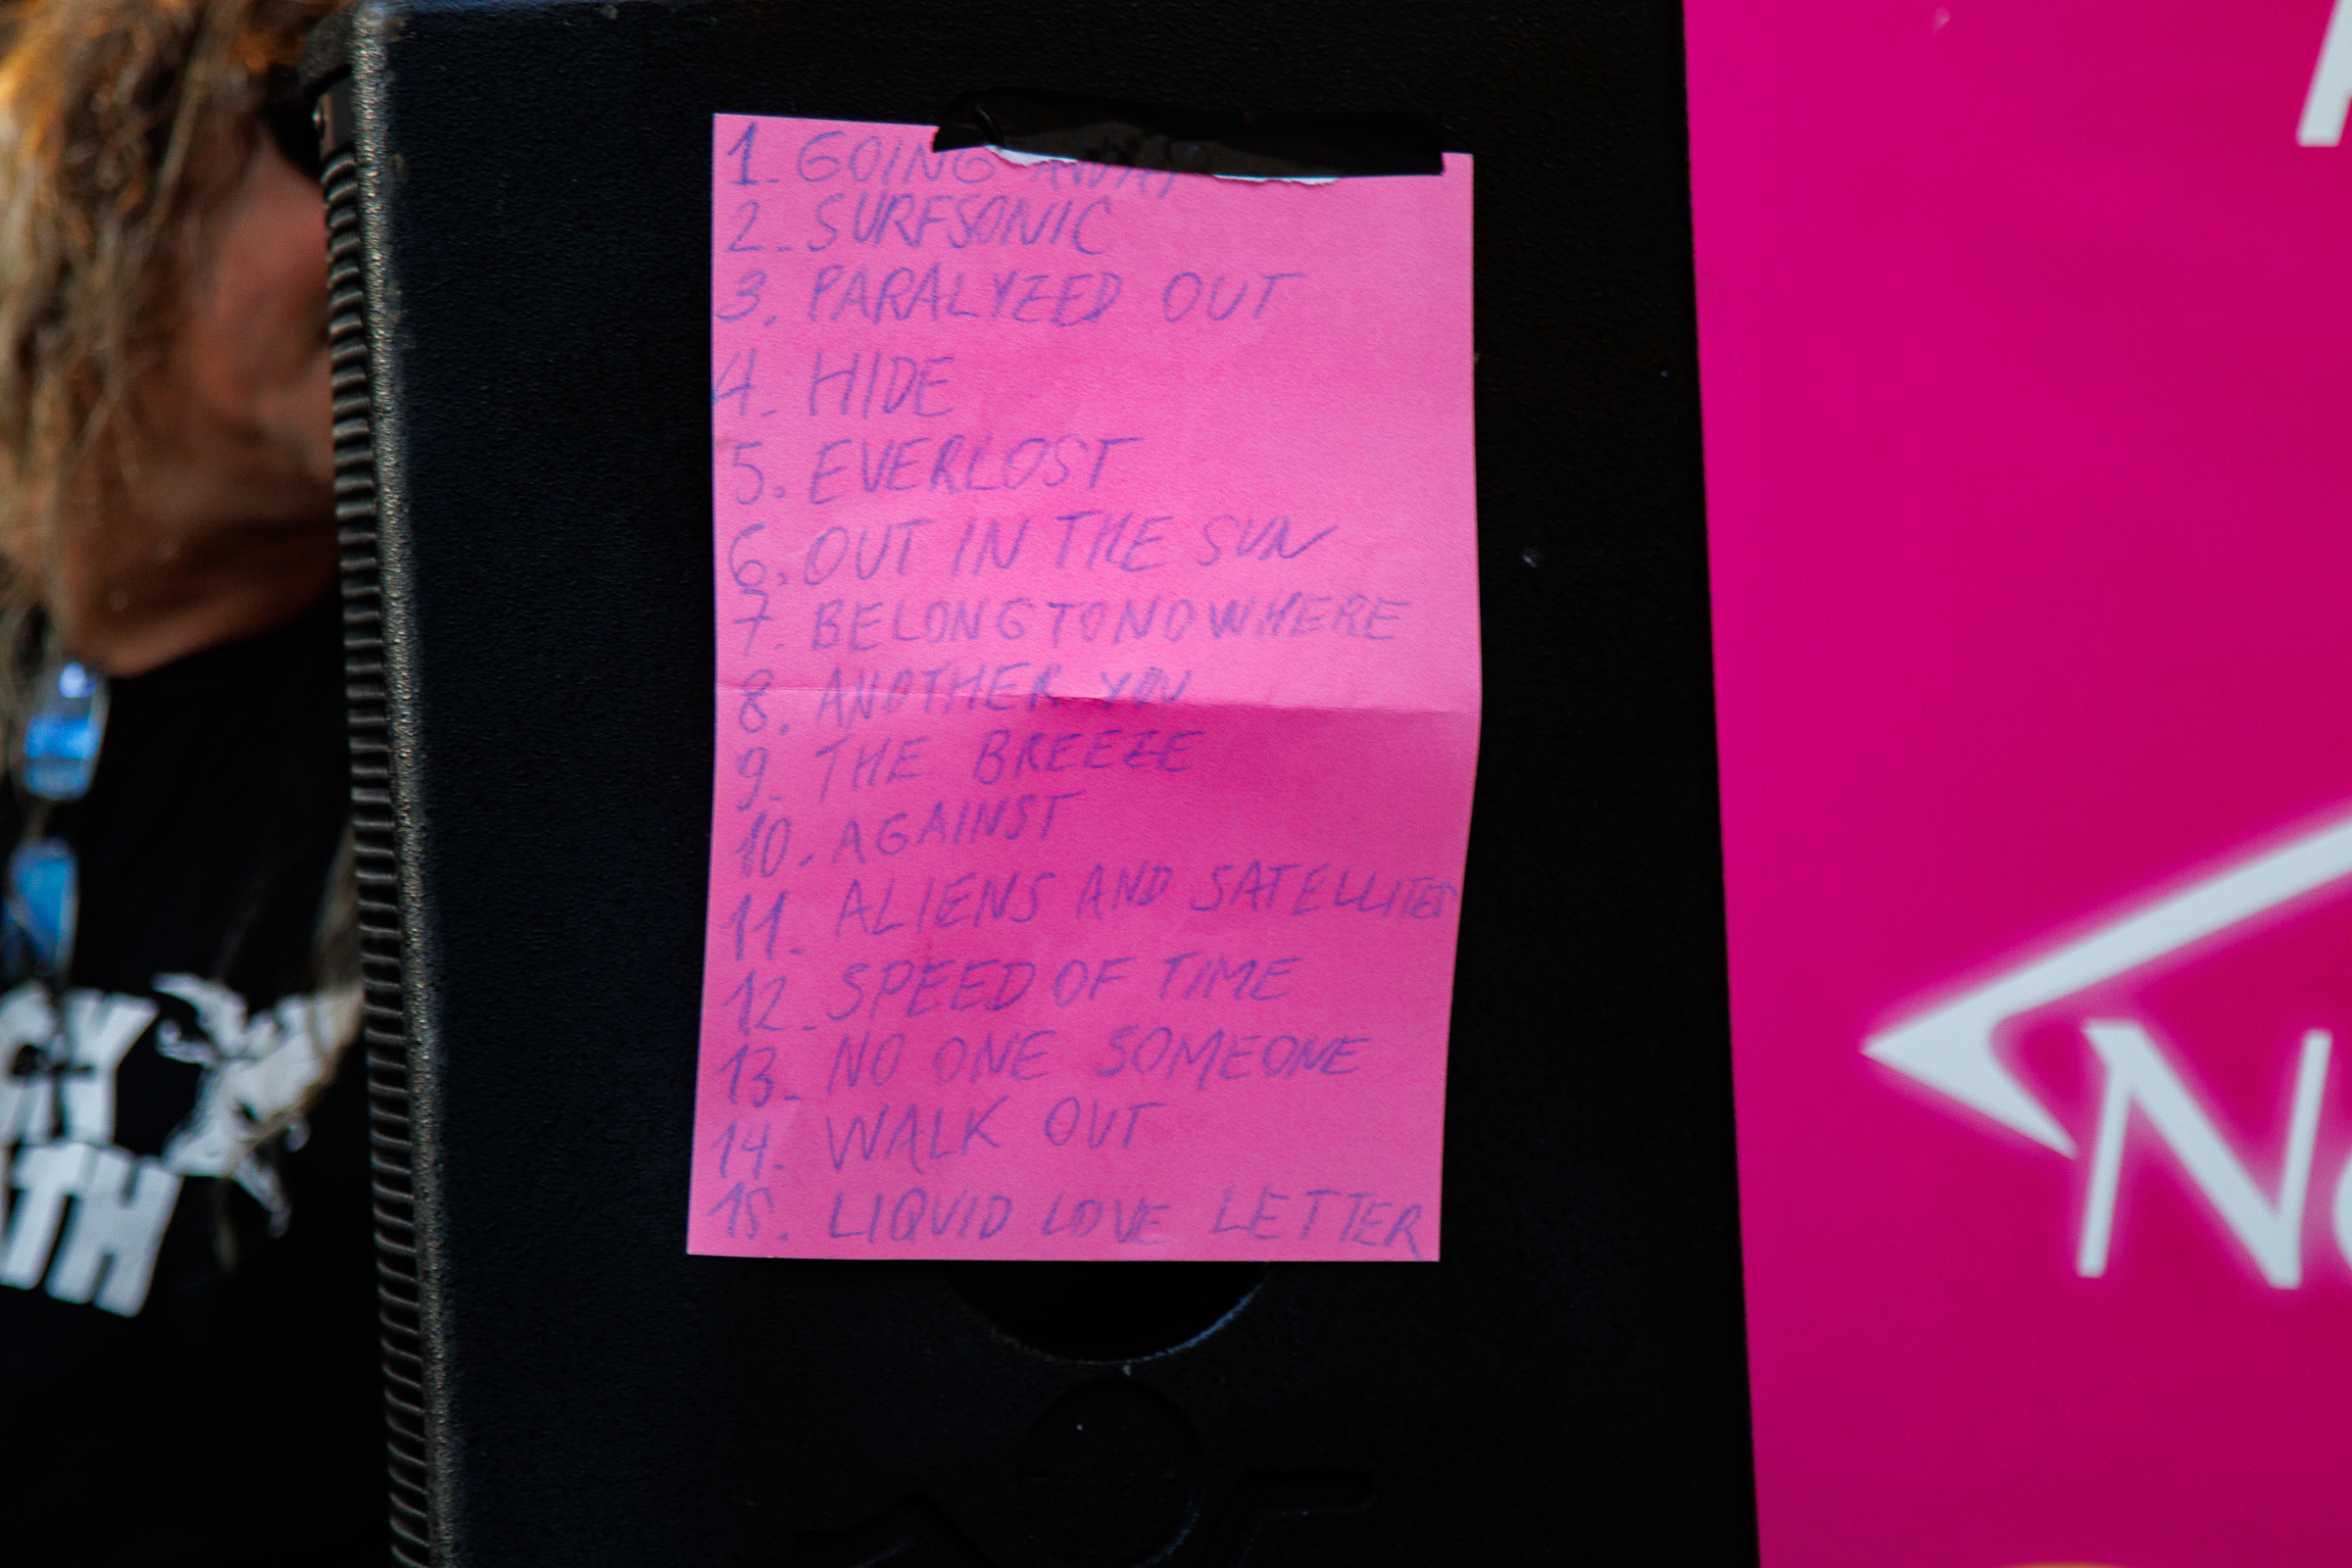 1. GOING AWAY
2. SURFSONIC
3. PARALYZED OUT
4. HIDE
5. EVERLOST
6. OUT IN THE SUN
7. BELONGTONOWHERE
8. ANOTHER YOU
9. THE BREEZE
10. AGAINST
11. ALIENS AND SATELLITES
12. SPEED OF TIME
13. NO ONE SOMEONE
14. WALK OUT
15. LIQUID LOVE LETTER